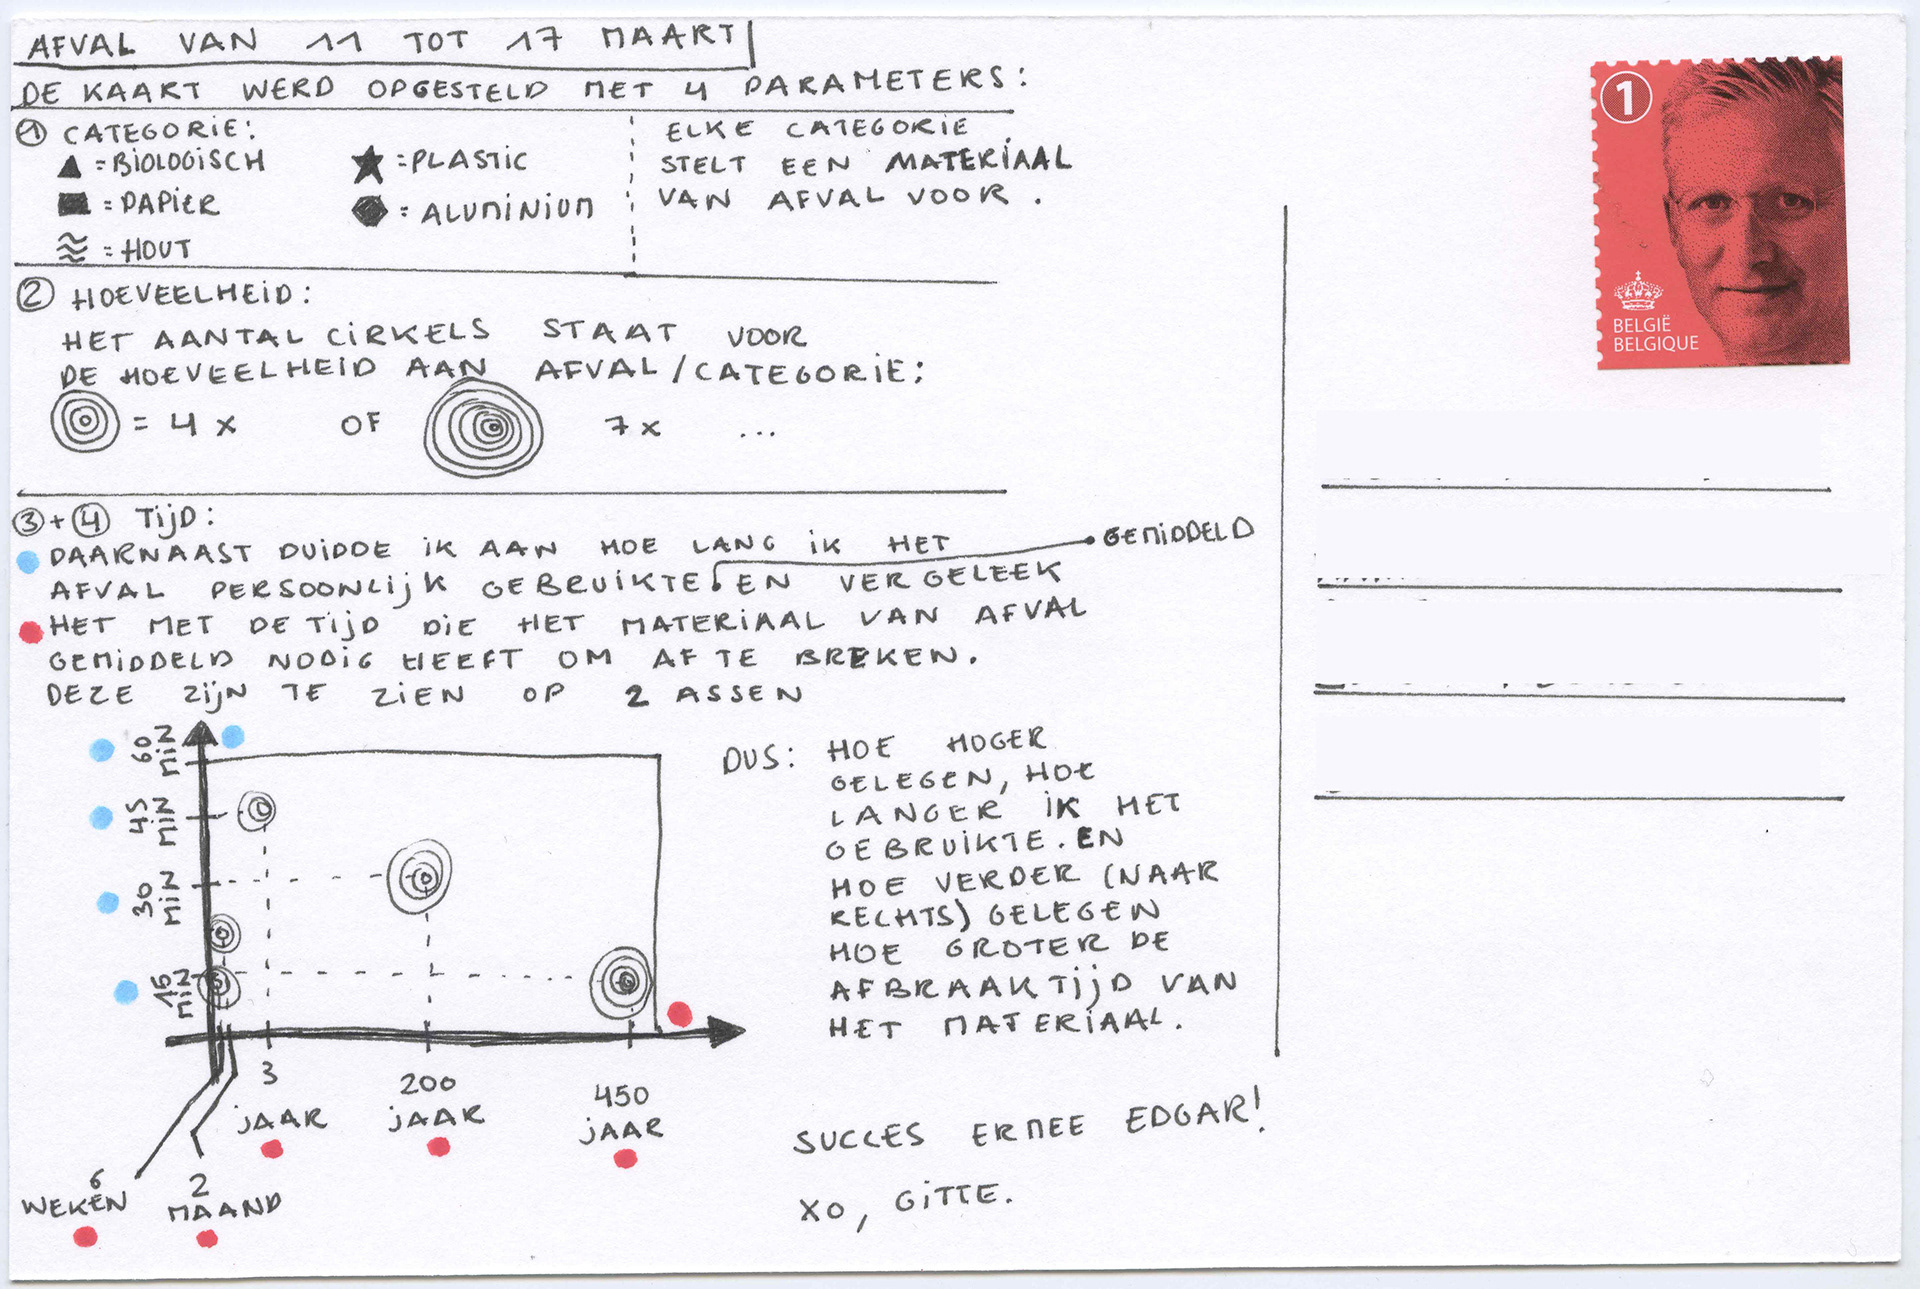 AFVAL VAN 11 TOT 17 MAART
DE KAART WERD OPGESTELD MET 4 PARAMETERS:
1 CATEGORIE:
▲ = BIOLOGISCH
★ = PLASTIC
■ = PAPIER
⬢ = ALUMINIUM
≈ = HOUT
ELKE CATEGORIE
STELT EEN MATERIAAL
VAN AFVAL VOOR.
2 HOEVEELHEID:
HET AANTAL CIRKELS STAAT VOOR
DE HOEVEELHEID AAN AFVAL/CATEGORIE:
= 4 x OF 7 x ...
3+4 TIJD:
DAARNAAST DUIDDE IK AAN HOE LANG IK HET
GEMIDDELD
AFVAL PERSOONLIJK GEBRUIKTE EN VERGELEEK
HET MET DE TIJD DIE HET MATERIAAL VAN AFVAL
GEMIDDELD NODIG HEEFT OM AF TE BREKEN.
DEZE ZIJN TE ZIEN OP 2 ASSEN
60 MIN
45 MIN
30 MIN
15 MIN
6 WEKEN
2 MAAND
3 JAAR
200 JAAR
450 JAAR
DUS: HOE HOGER
GELEGEN, HOE
LANGER IK HET
GEBRUIKTE. EN
HOE VERDER (NAAR
RECHTS) GELEGEN
HOE GROTER DE
AFBRAAKTIJD VAN
HET MATERIAAL.
SUCCES ERMEE EDGAR!
XO, GITTE.
1
BELGIË
BELGIQUE